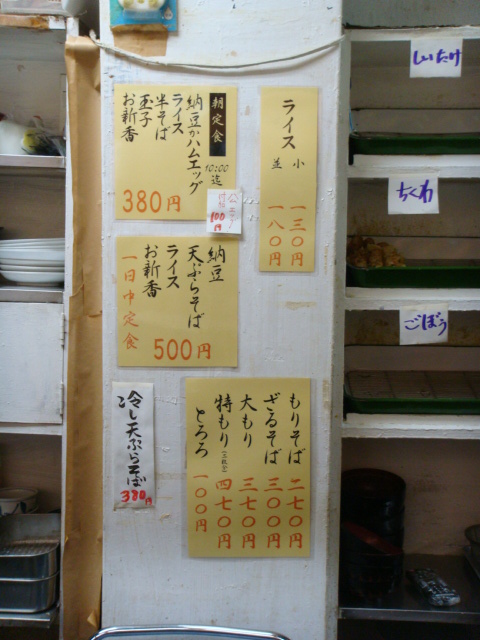 朝定食
10:00迄
納豆かハムエッグ
ライス
半そば
玉子
お新香
380円
100円
ライス
小 一三〇円
並 一八〇円
納豆
天ぷらそば
ライス
お新香
一日中定食
500円
冷し天ぷらそば
380円
もりそば 二七〇円
ざるそば 三〇〇円
大もり 三七〇円
特もり(三枚分) 四七〇円
とろろ 一〇〇円
しいたけ
ちくわ
ごぼう